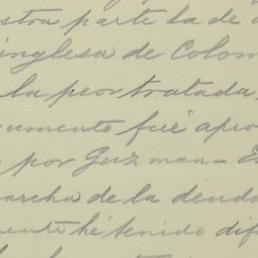 stra parte la de
inglesa de Colom
la peor tratada,
gumento fué apro
por Guzman — E
archa de la deuda
ente hé tenido dif